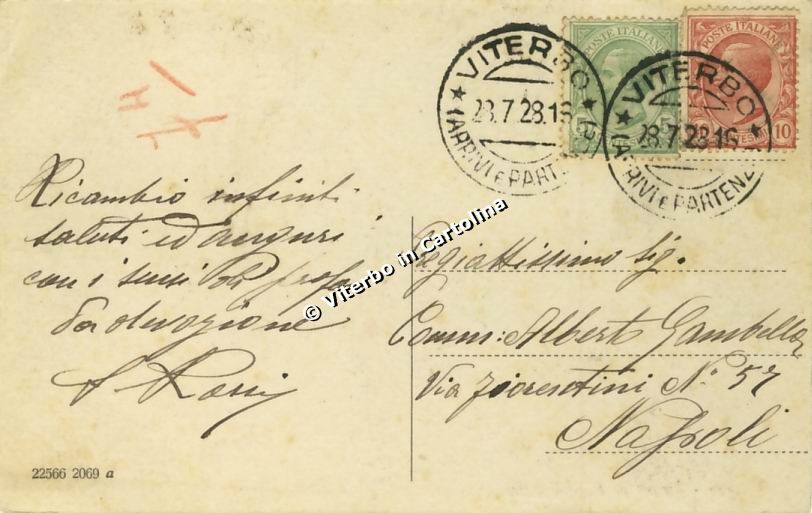 VITERBO
28.7.28.16
(ARRIVI E PARTENZ
POSTE ITALIANE
5
VITERBO
28.7.28.16
(ARRIVI E PARTENZ
POSTE ITALIANE
10
Ricambio infiniti
saluti ed auguri
con i sensi di
devozione
Rossi
© Viterbo in Cartolina
Pregiatissimo Sig.
Comm: Alberto Gambella
Via Fiorentini N.° 57
Napoli
22566 2069 a